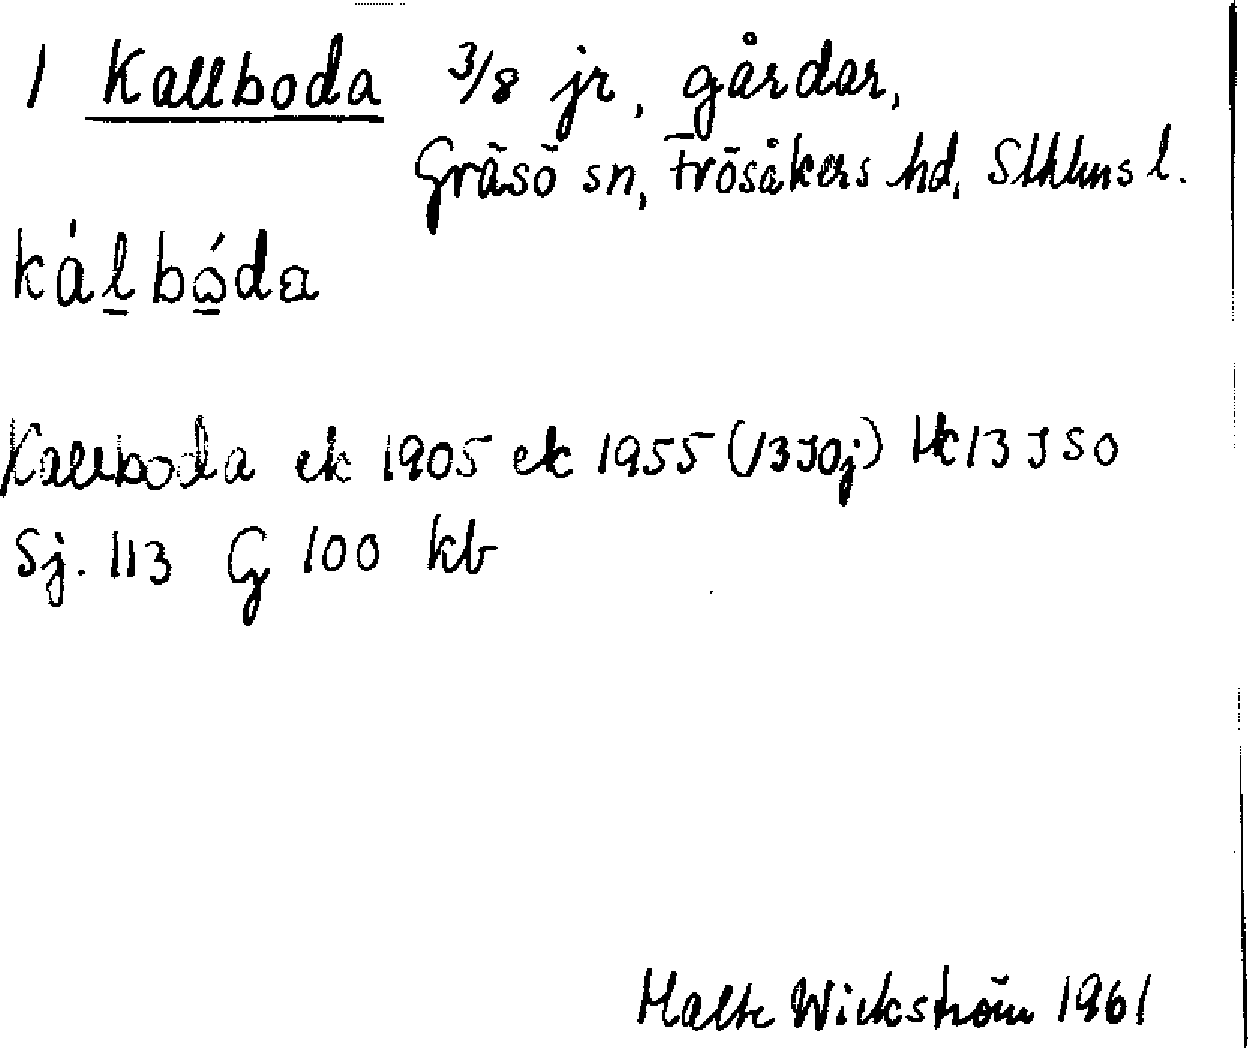 1 Kallboda 3/8 jr, gårdar,
Gräsö sn, Frösåkers hd, Sthlms l.
kálbǿda
Kallboda ek 1905 ek 1955 (13I0j) Hk 13 I SO
Sj. 113 G 100 kb
Malte Wickström 1961